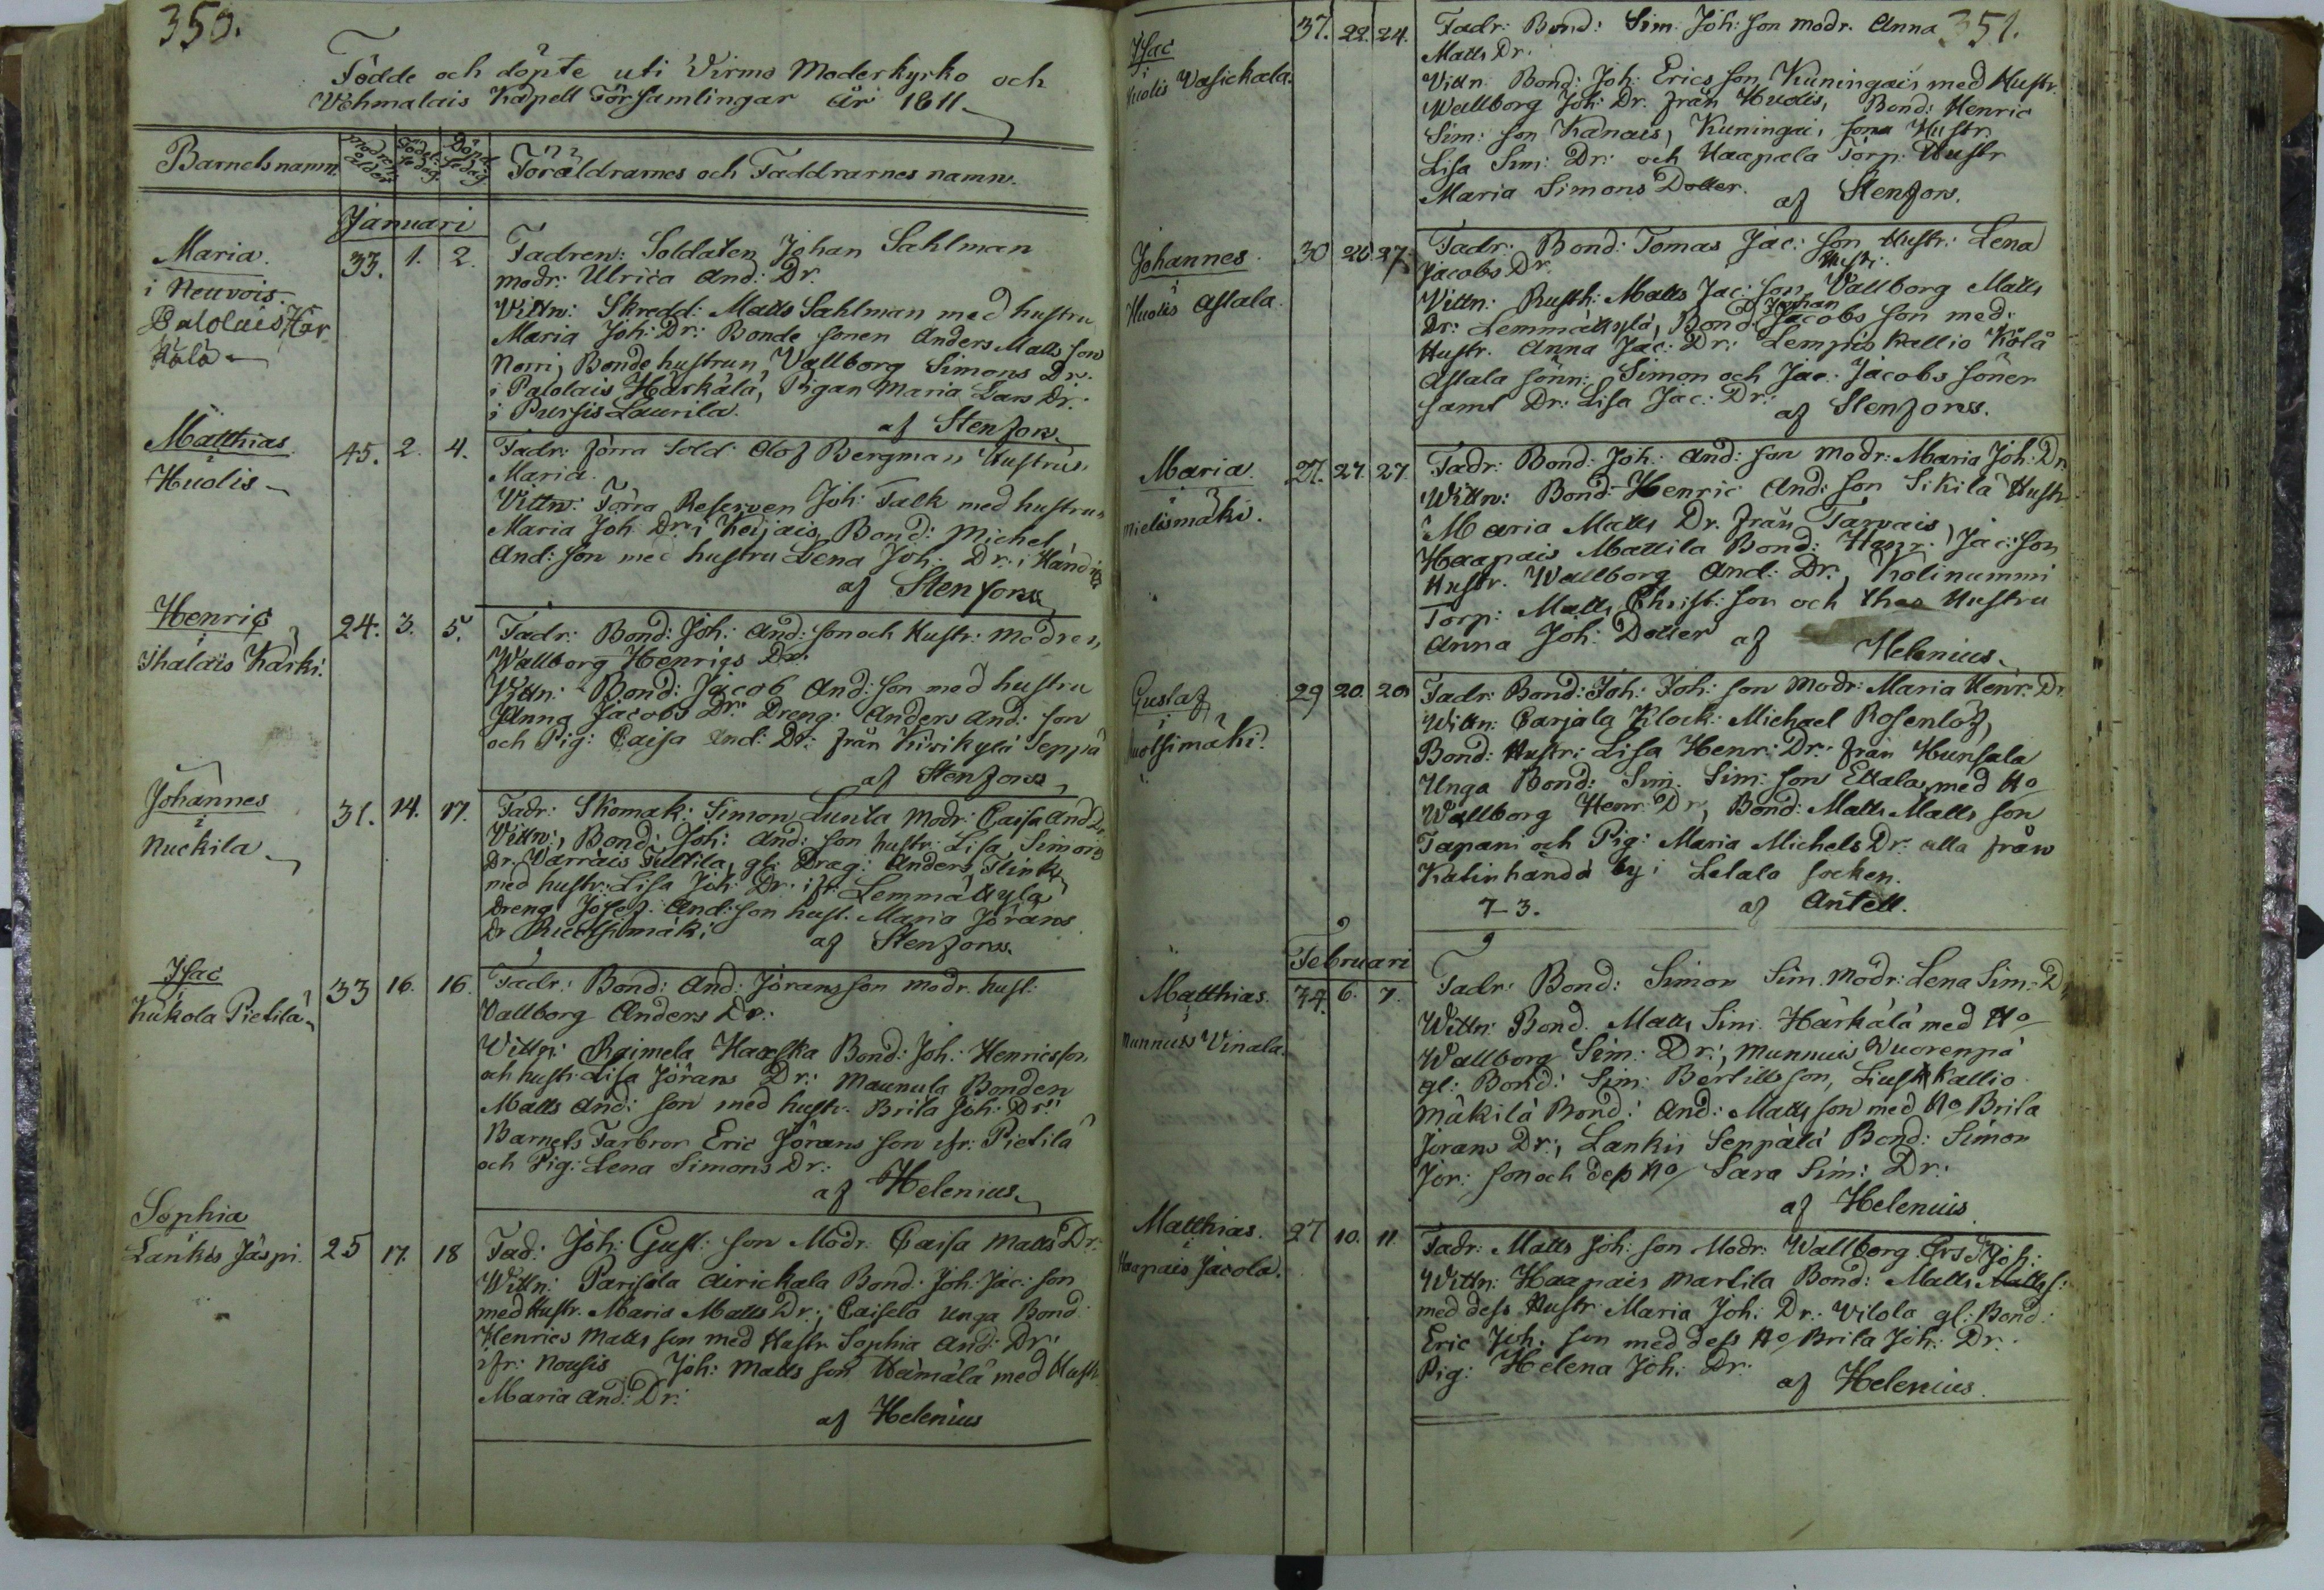 350.
Födde och döpte uti Virmo Moderkyrko och
Vehmalais Kapell Församlingar år 1811
Barnets namn. Modrens ålder Födelsedag. Döpelsedag Föräldrarnes och Faddrarnes namn.
Januari
Maria. 33. 1. 2. Fadren: Soldaten Johan Sahlman
i Neuvois. modr: Ulrica And: Dr.
Palolais Här Vittn: Skredd: Matts Sahlman med hustru
kälä Maria Joh: Dr: Bonde sonen Anders Matts son
Norri, Bonde hustrun, Vallborg Simons Dr.
i Palolais Härkälä, Pigan Maria Lars Dr:
i Pursis Laurila.
af Stenfors.
Matthias 45. 2. 4. Fadr: förra Sold: Olof Bergman Hustrun
i Maria.
Hudis Vittn: Förra Reserven Joh: Falk med hustrun
Maria Joh: Dr: i Keijais, Bond: Michel
And: son med hustru Lena Joh: Dr: i
af Stenfors
Henric 24. 3. 5. Fadr: Bond: Joh: And: son och Hustr: modren
i Wallborg Henrics Dr:
Ihalais Kärki. Vittn: Bond: Jacob And: son med hustru
Anna Jacobs Dr: Dreng: Anders And: son
och Pig: Caisa And: Dr: från Kirikylä Seppä
af Stenfors
Johannes 31. 14. 17. Fadr: Skomak: Simon Lunta Modr: Caisa And Dr.
i Vittn:, Bond: Joh: And: son hustr: Lisa Simons
Nuckila Dr. Warrais Tultila, gl: Drag: Anders Flink
med hustr: Lisa Joh: Dr: ifr: Lemmättylä
Dreng Josef And: son hust. Maria Jörans
Dr
af Stenfors.
Isac 33 16. 16. Fadr: Bond: And: Jörans son modr. hust:
Kukola Pietilä Vallborg Anders Dr:
Vittn: Raimela Bond: Joh: Henricsson
och hustr: Lisa Jörans Dr: Maunula Bonden
Matts And: son med hustr. Brita Joh: Dr:
Barnets Farbror Eric Jörans son ifr: Pietilä
och Pig: Lena Simons Dr:
af Helenius
Sophia 25 17. 18 Fad: Joh: Gust: son Modr: Caisa Matts Dr.
Lankis Jäspi. Wittn: Parisila Airickala Bond: Joh: Jac: son
med Hustr. Maria Matts Dr:, Caisela unga Bond:
Henrics Matts son med Hustr Sophia And: Dr:
ifr: Nousis Joh: Matts son Hämälä med Hustr
Maria And: Dr:
af Helenius
351.
Isac 37. 22. 24. Fadr: Bond: Sim: Joh: son modr. Anna
i Matts Dr.
Hudis Wasickala. Vittn: Bond: Joh: Erics son, Kuningais med Hustr.
Wallborg Joh: Dr. från Hudis, Bond: Henric
Sim: son Kanais, Kuningai, Hustr.
Lisa Sim: Dr: och Haapala Torp: Hustr
Maria Simons Dotter.
af Stenfors.
Johannes 30 26 27. Fadr: Bond: Tomas Jac: son Hustr: Lena
i Jacobs Dr.
Hudis Astala. Hustr:
Vittn: Rusth: Matts Jac: son Vallborg Matts
Johan
Dr: Lemmättylä, Bond: Jacobs son med
Hustr. Anna Jac: Dr: Lempis Kallio Kölä
Astala sönn: Simon och Jac: Jacobs söner
samt Dr: Lisa Jac: Dr:
af Stenfors.
Maria. 27. 27. 27. Fadr: Bond: Joh: And: son modr: Maria Joh: Dr.
i Wittn: Bond: Henric And: son Sikilä Hustr
Mielismäki. Maria Matts Dr. från Tarvais,
Haapais Mattila Bond: Henr: Jac: son
Hustr: Wallborg And: Dr:, Kolinummi
Torp: Matts Christ: son och thes Hustru
Anna Joh: Dotter af Helenius
Gustaf 29 20. 20. Fadr: Bond: Joh: Joh: son Modr: Maria Henr: Dr
i Wittn: Carjala Klock: Michael Rosenlöf,
Bond: Hustr: Lisa Henr: Dr: från Hunsala
Unga Bond: Sim: Sim: son Ettala, med Ho
Wallborg Henr: Dr, Bond: Matts Matts son
Tapani och Pig: Maria Michels Dr: alla från
Katinhändä by i Letala socken.
7-3. af Antell.
Februari
Matthias. 34. 6. 7. Fadr: Bond: Simon Sim. Modr: Lena Sim: Dr
i Wittn: Bond. Matts Sim: Härkälä med Ho
Munnuis Vinala. Wallborg Sim: Dr:, Munnuis Vuorenpä
gl: Bond: Sim: Bertills son, Kallio
Mäkilä Bond: And: Matts son med Ho Brita
Jörans Dr:, Lankis Seppälä Bond: Simon
Jör: son och dess Ho Sara Sim: Dr:
af Helenius
Matthias. 27 10. 11. Fadr: Matts Joh: son Modr: Wallborg Joh:
i Wittn: Haapais Martila Bond: Matts Matts s:
Haapais Jacola. med dess Hustr: Maria Joh: Dr: Vilola gl: Bond:
Eric Joh: son med dess Ho Brita Joh: Dr:
Pig: Helena Joh: Dr:
af Helenius.